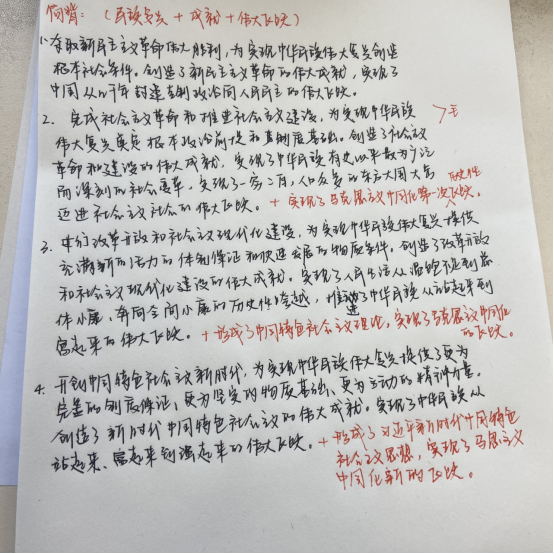 何谓：（民族复兴＋成就＋伟大飞跃）
1.夺取新民主主义革命伟大胜利，为实现中华民族伟大复兴创造
根本社会条件。创造了新民主主义革命的伟大成就，实现了
中国从几千年封建专制政治向人民民主的伟大飞跃。
2. 完成社会主义革命和推进社会主义建设，为实现中华民族
伟大复兴奠定根本政治前提和制度基础。创造了社会主义
革命和建设的伟大成就，实现了中华民族有史以来最为广泛
而深刻的社会变革，实现了一穷二白，人口众多的东方大国大步
迈进社会主义社会的伟大飞跃。＋实现了马克思主义中国化第一次历史性飞跃。
3. 进行改革开放和社会主义现代化建设，为实现中华民族伟大复兴提供
充满新的活力的体制保证和快速发展的物质条件。创造了改革开放
和社会主义现代化建设的伟大成就。实现了人民生活从温饱不足到总
体小康、奔向全面小康的历史性跨越，推进了中华民族从站起来到
富起来的伟大飞跃。＋形成了中国特色社会主义理论，实现了马克思主义中国化
的飞跃。
4. 开创中国特色社会主义新时代，为实现中华民族伟大复兴提供了更为
完善的制度保证、更为坚实的物质基础、更为主动的精神力量。
创造了新时代中国特色社会主义的伟大成就。实现了中华民族从
站起来、富起来到强起来的伟大飞跃。＋形成了习近平新时代中国特色
社会主义思想，实现了马克思主义
中国化新的飞跃。